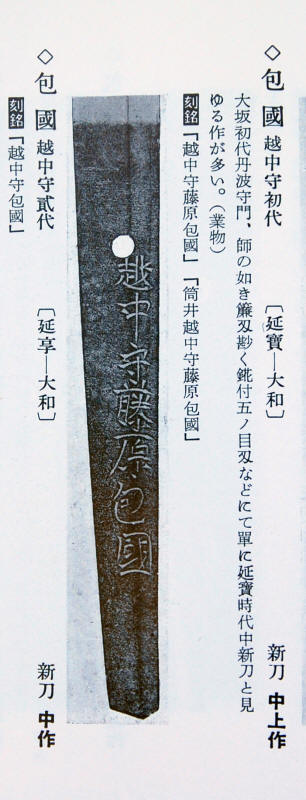 ◇包國 越中守初代 〔延寶―大和〕 新刀 中上作
大坂初代丹波守門、師の如き簾刄尠く鎺付五ノ目刄などにて單に延寶時代中新刀と見
ゆる作が多い。（業物）
刻銘「越中守藤原包國」「筒井越中守藤原包國」
越中守藤原包國
◇包國 越中守貳代 〔延享―大和〕 新刀 中作
刻銘「越中守包國」